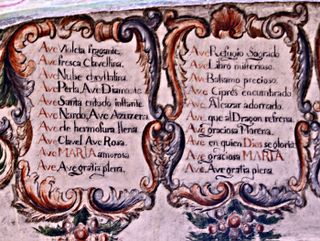 Ave Violeta fragante.
Ave fresca Clavellina.
Ave Nube christalina.
Ave Perla, Ave Diamante.
Ave Santa en todo instante.
Ave Nardo, Ave Azuzena.
Ave de hermosura llena.
Ave Clavel, Ave Rosa.
Ave MARIA amorosa
Ave, Ave gratia plena.
Ave Refugio Sagrado.
Ave Libro misterioso.
Ave Balsamo precioso.
Ave Ciprés encumbrado
Ave Alcazar adornado.
Ave que al Dragon refrena
Ave graciosa Morena.
Ave en quien Dios se gloría
Ave graciosa MARIA
Ave, Ave gratia plena.